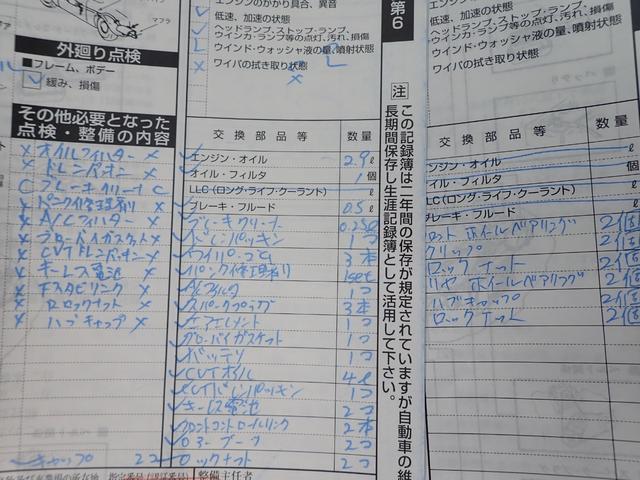 マフラ
外廻り点検
■フレーム、ボデー
緩み、損傷
その他必要となった
点検・整備の内容
× オイルフィルタ ×
× ドレンパッキン ×
C ブレーキクリーナ C
× パンク修理剤 ×
× A/Cフィルター ×
× CVTドレンパッキン ×
× キーレス電池 ×
× Rロックナット ×
× ハブキャップ ×
キャップ 2コ
エンジンのかかり具合、異音
低速、加速の状態
ヘッドランプ、ストップ・ランプ、
ウインカ・ランプ等の点灯、汚れ、損傷
ウインド・ウォッシャ液の量、噴射状態
ワイパの拭き取り状態
交換部品等 数量
エンジン・オイル 2.9 ℓ
オイル・フィルタ 1 個
LLC(ロング・ライフ・クーラント) ℓ
ブレーキ・フルード 0.5 ℓ
ドレンパッキン 1コ
ワイパーゴム 3本
パンク修理剤 1set
A/Cフィルタ 1コ
スパークプラグ 3本
エアエレメント 1コ
バッテリ 1コ
CVTオイル 4ℓ
CVTドレンパッキン 1コ
キーレス電池 2コ
フロントコントロールリンク 2本
ロアーブーツ 2コ
ロックナット 2コ
整備主任者
第6
注 この記録簿は二年間の保存が規定されていますが自動車の維
長期間保存し生涯記録簿として活用して下さい。
低速、加速の状態
ヘッドランプ、ストップ・ランプ、
ウインカ・ランプ等の点灯、汚れ、損傷
ウインド・ウォッシャ液の量、噴射状態
ワイパの拭き取り状態
交換部品等 数量
ンジン・オイル ℓ
オイル・フィルタ 個
LC(ロング・ライフ・クーラント) ℓ
ブレーキ・フルード ℓ
ロント ホイールベアリング 2個
グリップ 2個
ロックナット 2個
リヤ ホイールベアリング 2個
ハブキャップ 2個
ロックナット 2個